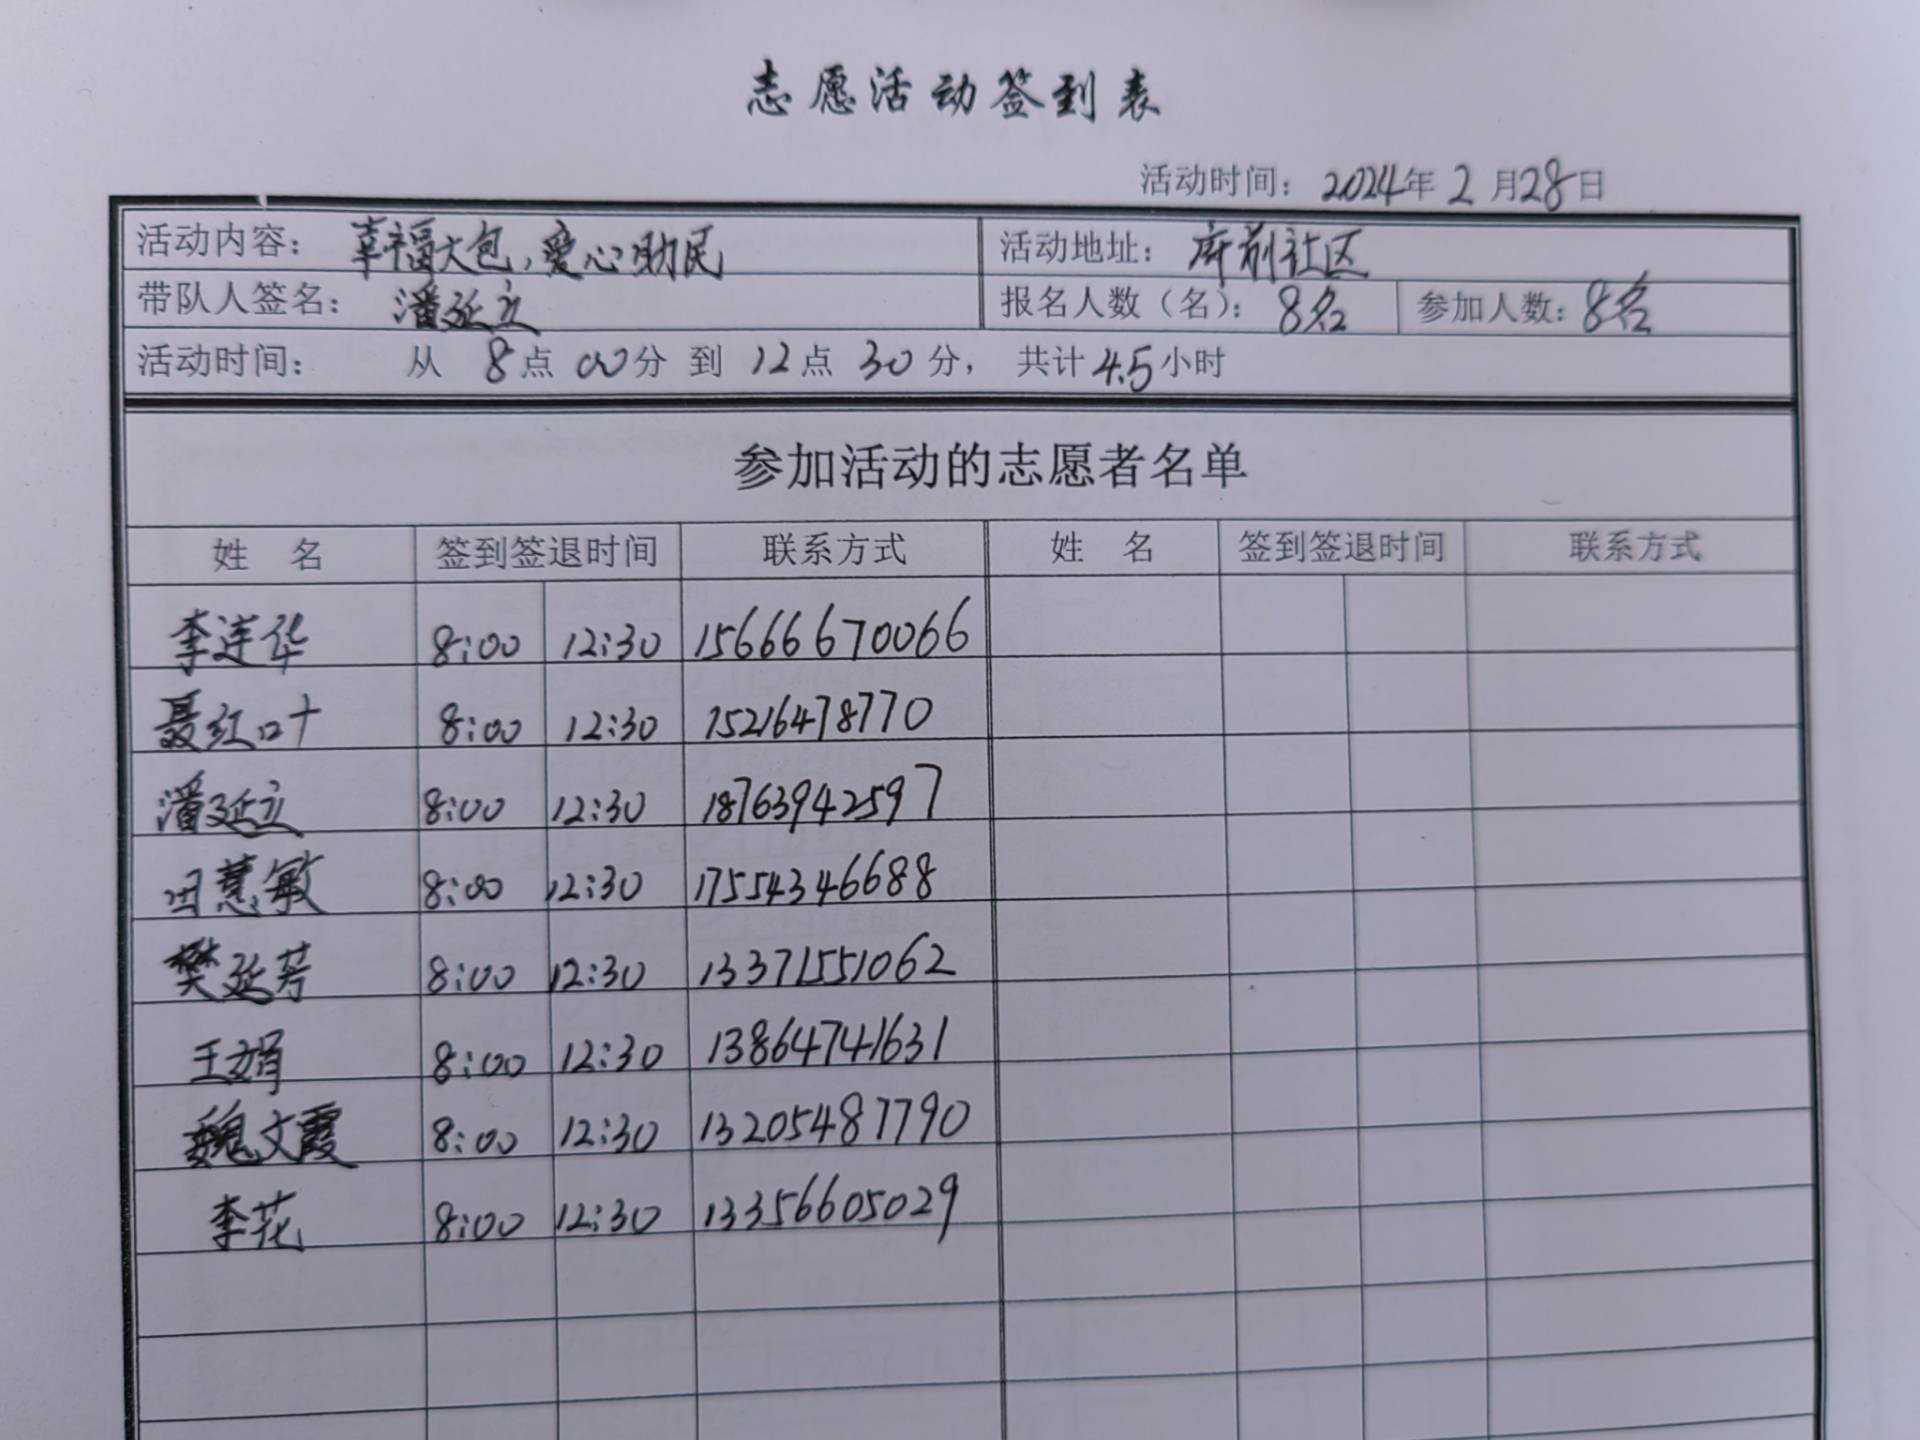 志愿活动签到表
活动时间：2024年2月28日
活动内容：幸福大包，爱心助民 活动地址：府前社区
带队人签名：潘延立 报名人数（名）：8名 参加人数：8名
活动时间： 从 8点00分 到 12点30分， 共计4.5小时
参加活动的志愿者名单
姓 名 签到签退时间 联系方式 姓 名 签到签退时间 联系方式
李连华 8:00 12:30 15666670066
聂红叶 8:00 12:30 15216478770
潘延立 8:00 12:30 18763942597
田慧敏 8:00 12:30 17554346688
樊延芳 8:00 12:30 13371551062
王娟 8:00 12:30 13864741631
魏文霞 8:00 12:30 13205487790
李花 8:00 12:30 13356605029